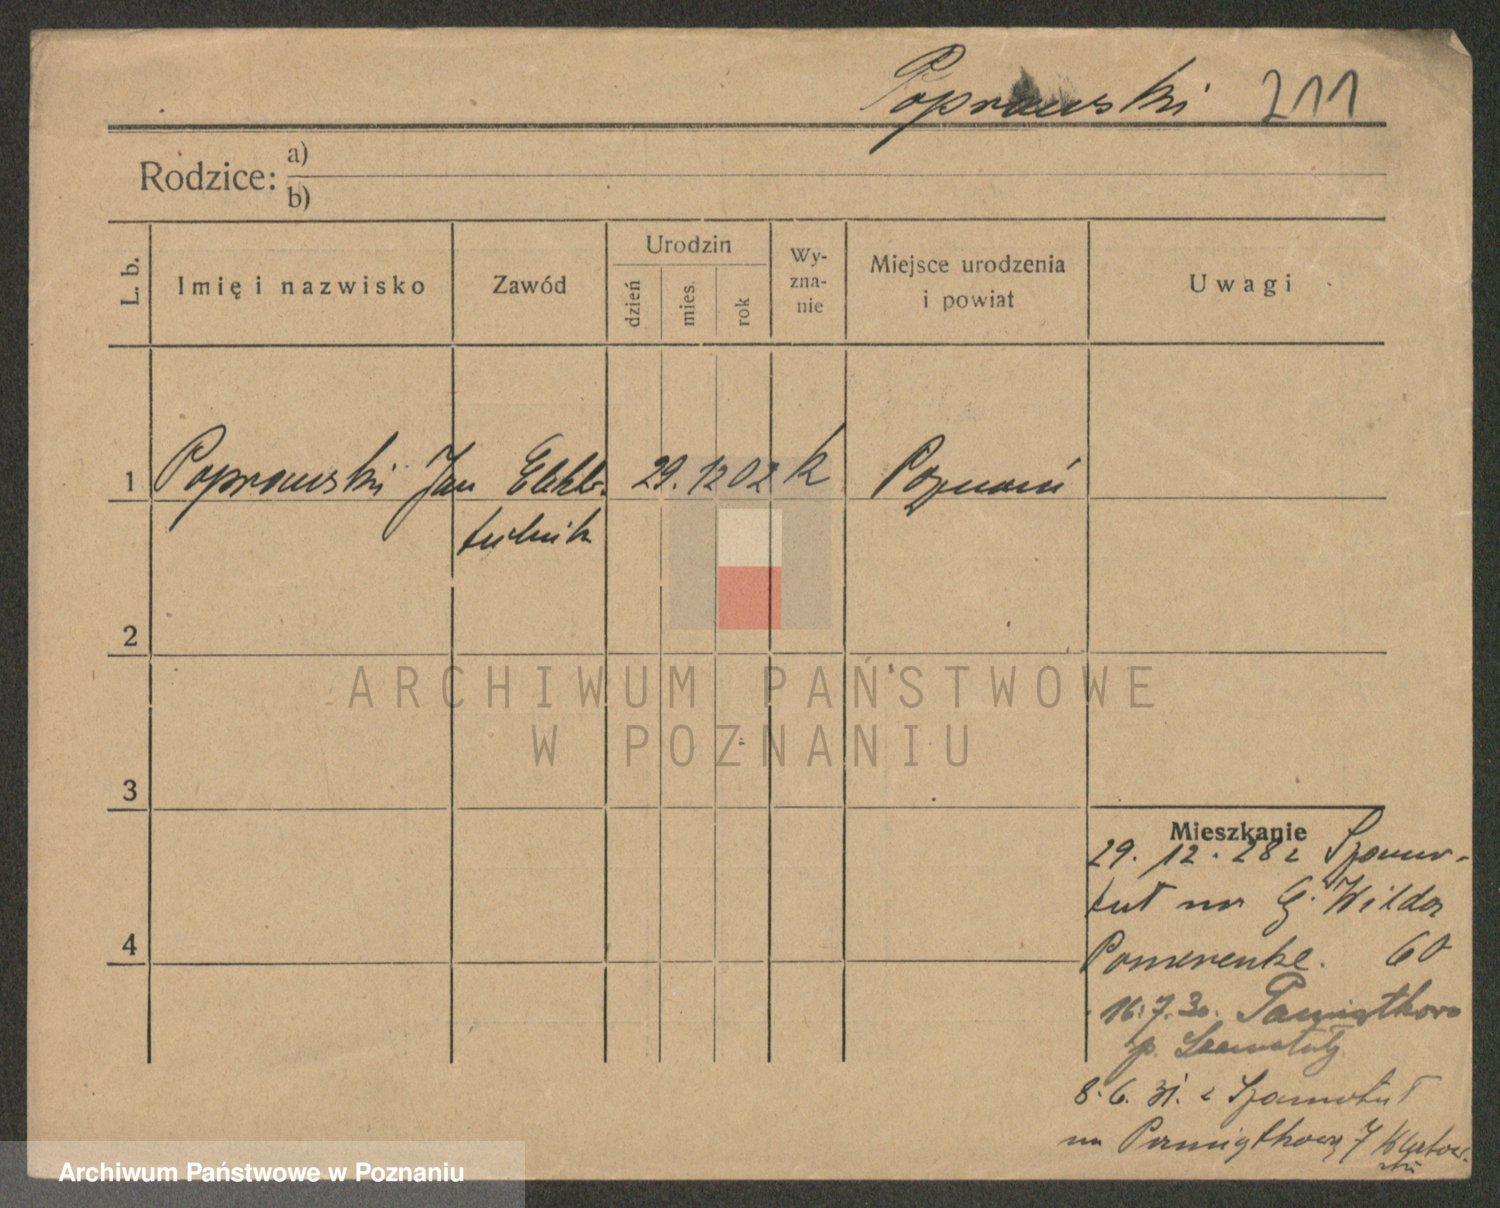 Poprawski 211
Rodzice: a)
b)
L. b. Imię i nazwisko Zawód Urodzin dzień mies. rok Wy-zna-nie Miejsce urodzenia i powiat Uwagi
1 Poprawski Jan Elektr. 29. 12 02 k Poznań
technik
2
ARCHIWUM PAŃSTWOWE
W POZNANIU
3
Mieszkanie
29. 12. 28 z Szamo-
tuł na G. Wilda
Pomerenke. 60
4
16.7.30. Pamiątkowo
p. Szamotuły
8.6.31. z Szamotuł
na Pamiątkową 7
Archiwum Państwowe w Poznaniu